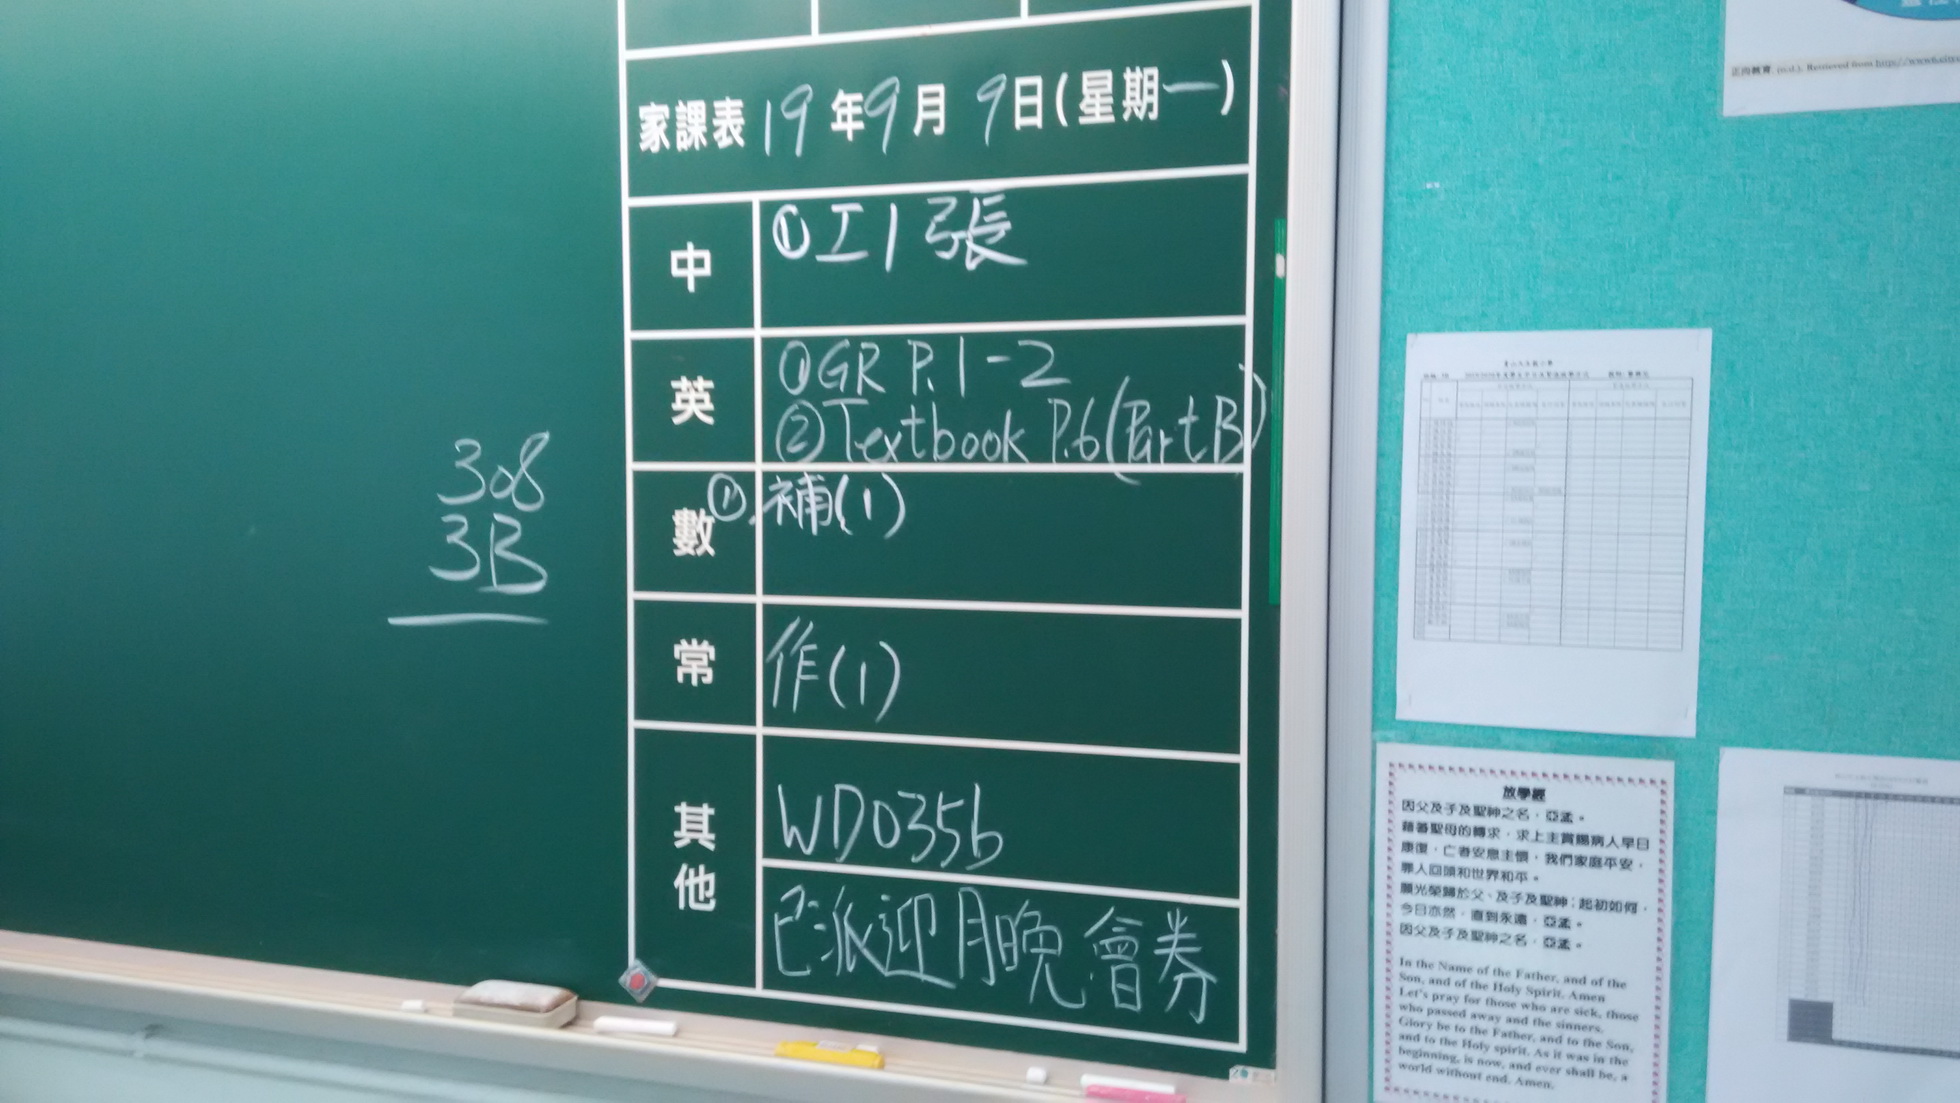 308
3B
家課表 19年9月9日(星期一)
中
①工1張
英
①GR P.1-2
②Textbook P.6(Part B)
數
①補(1)
常
作(1)
其他
WD035b
已派迎月晚會券
放學經
因父及子及聖神之名，亞孟。
藉著聖母的轉求，求上主賞賜病人早日
康復，亡者安息主懷，我們家庭平安，
罪人回頭和世界和平。
願光榮歸於父、及子及聖神；起初如何，
今日亦然，直到永遠，亞孟。
因父及子及聖神之名，亞孟。
In the Name of the Father, and of the
Son, and of the Holy Spirit. Amen
Let's pray for those who are sick, those
who passed away and the sinners.
Glory be to the Father, and to the Son,
and to the Holy spirit. As it was in the
beginning, is now, and ever shall be, a
world without end. Amen.